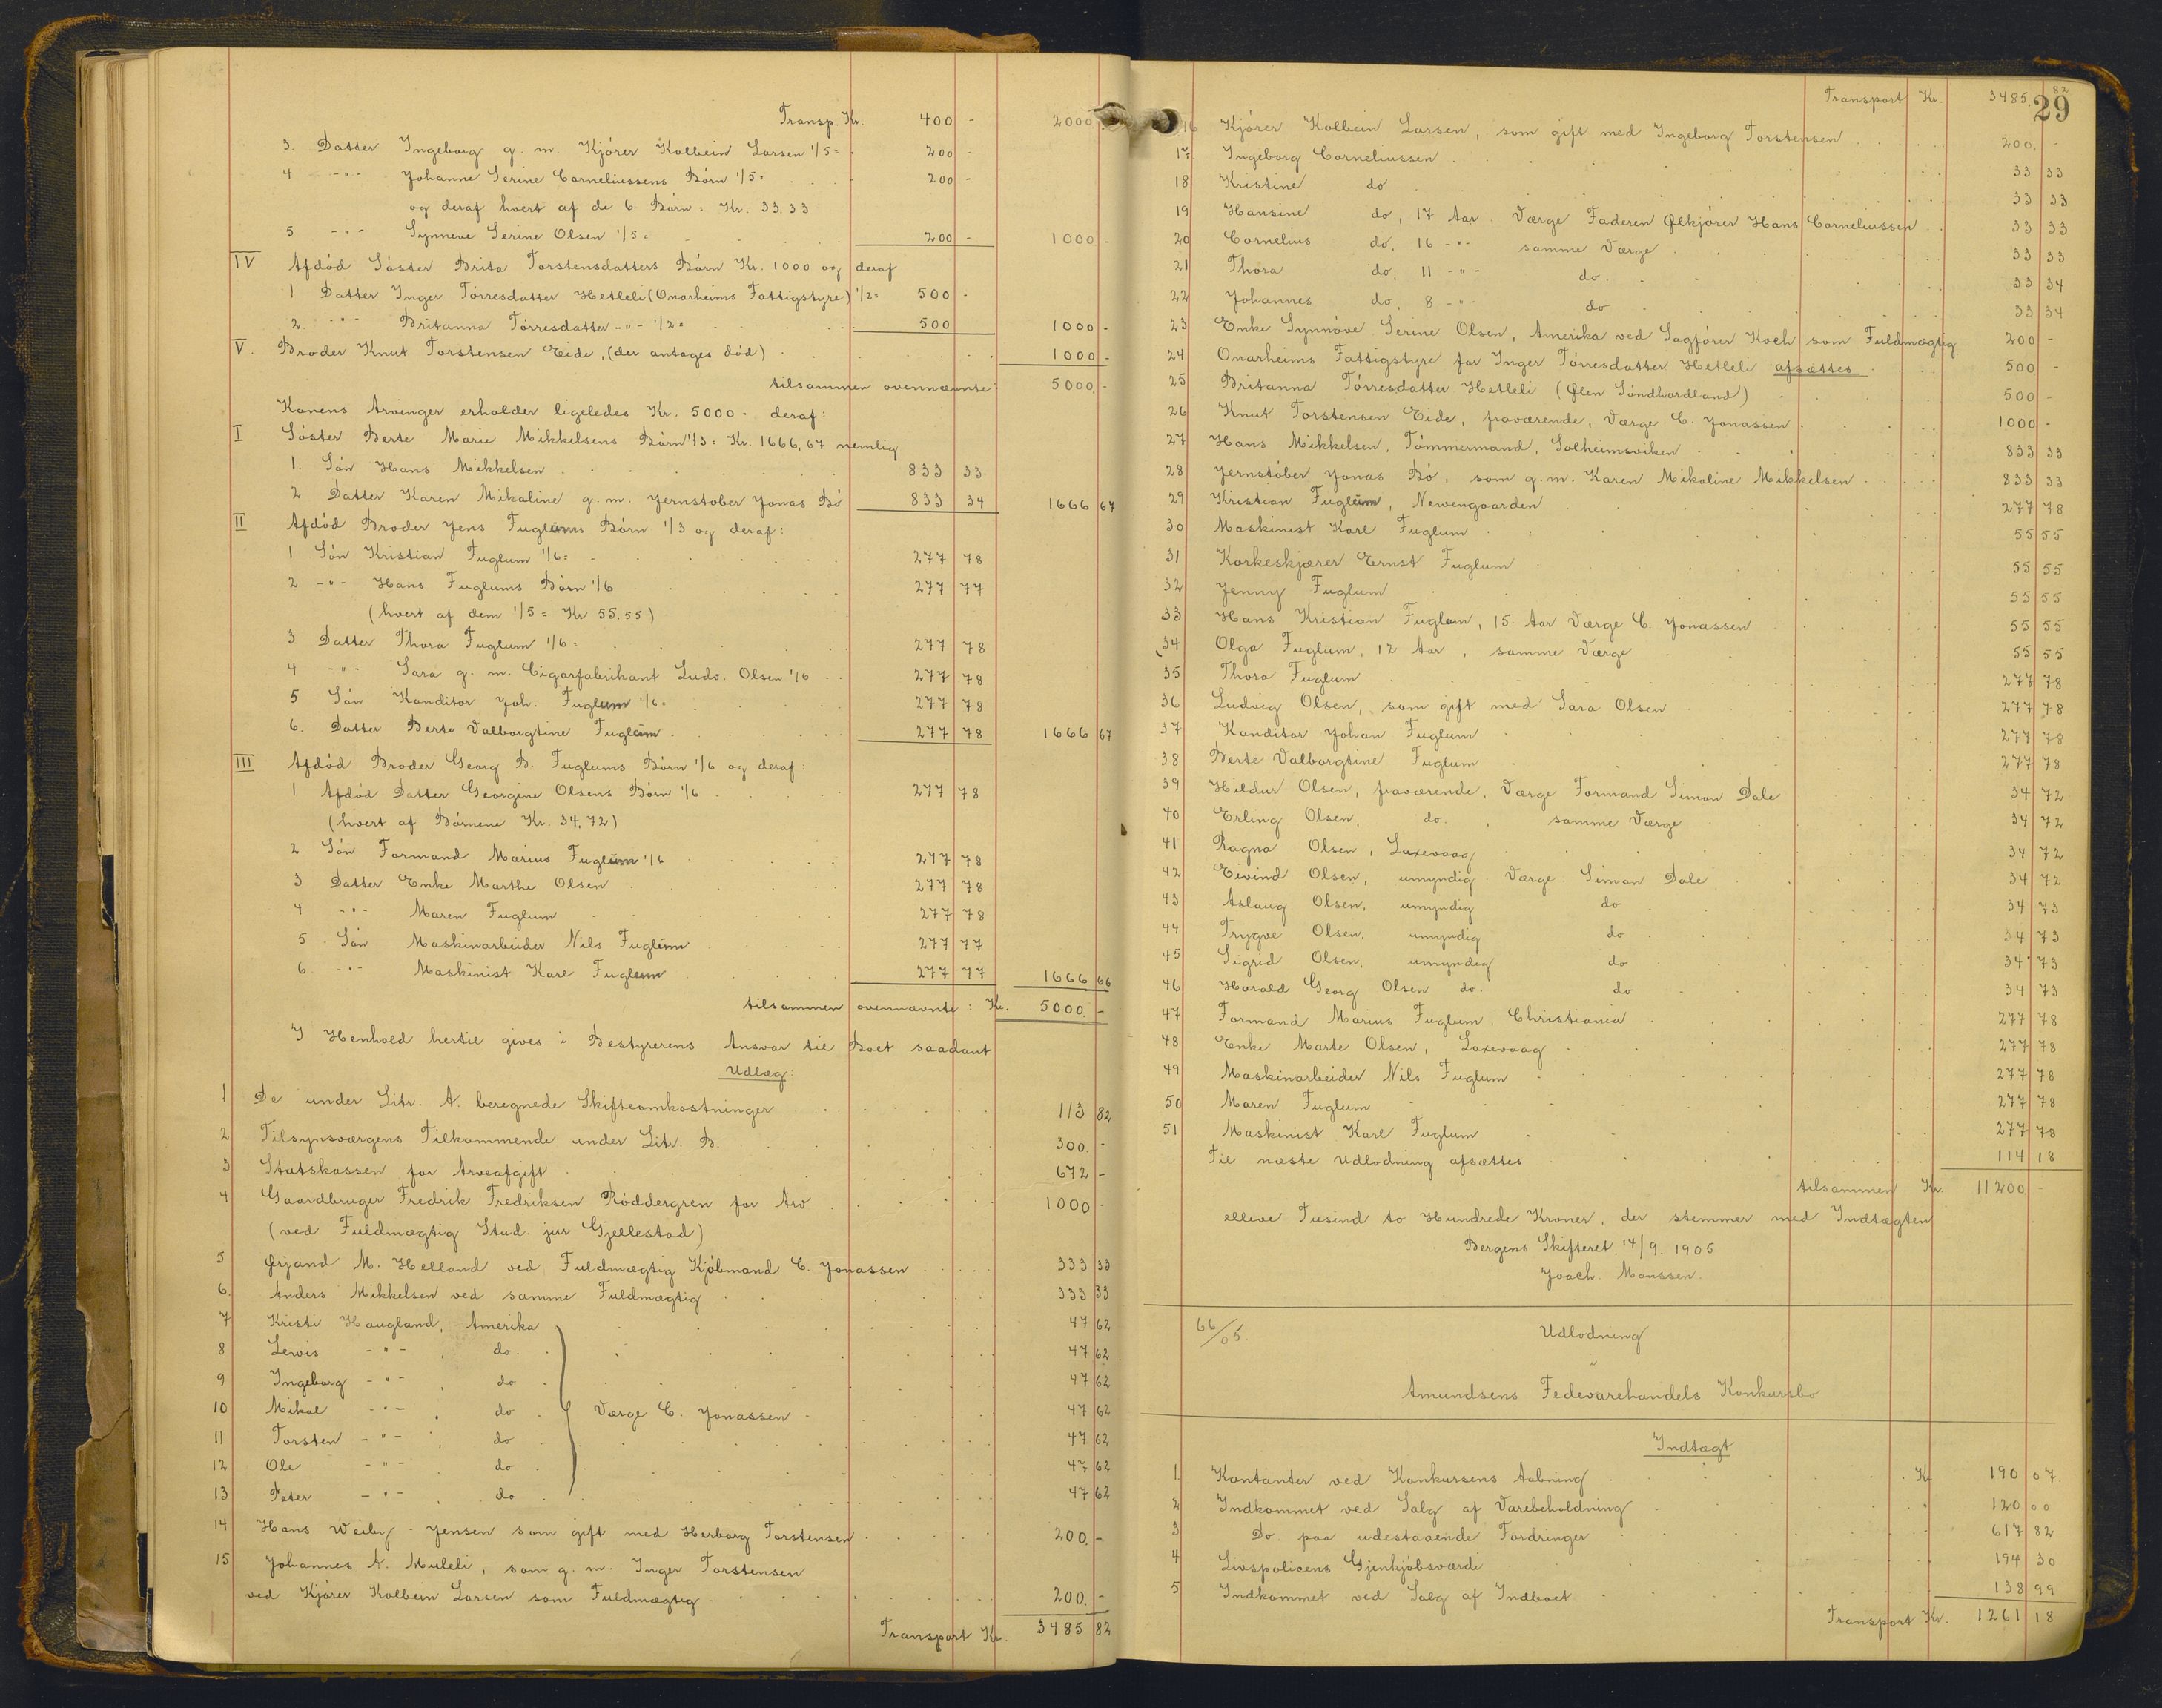 Transp. Kr. 400 - 2000 -
3. Datter Ingeborg g. m. Kjører Kolbein Larsen 1/5 = 200 -
4 -"- Johanne Serine Corneliussens Børn 1/5 = 200 -
og deraf hvert af de 6 Børn = Kr. 33.33
5 -"- Synneve Serine Olsen 1/5 = 200 - 1000 -
IV Afdød Søster Brita Torstensdatters Børn Kr. 1000 og deraf
1 Datter Inger Tørresdatter Hetleli (Onarheims Fattigstyre) 1/2 = 500 -
2. -"- Britanna Tørresdatter -"- 1/2 = 500 1000 -
V. Broder Knut Torstensen Eide, (der antages død) 1000 -
tilsammen ovennævnte 5000. -
Konens Arvinger erholder ligeledes Kr. 5000 - deraf:
I Søster Berte Marie Mikkelsens Børn 1/3 = Kr. 1666,67 nemlig
1. Søn Hans Mikkelsen 833 33
2 Datter Karen Mikaline g. m. Jernstøber Jonas Bø 833 34 1666 67
II Afdød Broder Jens Fuglums Børn 1/3 og deraf:
1 Søn Kristian Fuglum 1/6 = 277 78
2 -"- Hans Fuglums Børn 1/6 277 77
(hvert af dem 1/5 = Kr 55.55)
3 Datter Thora Fuglum 1/6 = 277 78
4 -"- Sara g. m. Cigarfabrikant Ludv. Olsen 1/6 277 78
5 Søn Konditor Joh. Fuglum 1/6 = 277 78
6. Datter Berte Valborgtine Fuglum 277 78 1666 67
III Afdød Broder Georg B. Fuglums Børn 1/6 og deraf:
1 Afdød Datter Georgine Olsens Børn 1/6 277 78
(hvert af Børnene Kr. 34,72)
2 Søn Formand Marius Fuglum 1/6 277 78
3 Datter Enke Marthe Olsen 277 78
4 -"- Maren Fuglum 277 78
5 Søn Maskinarbeider Nils Fuglum 277 77
6 -"- Maskinist Karl Fuglum 277 77 1666 66
tilsammen ovennævnte: Kr. 5000. -
I Henhold hertil gives i Bestyrerens Ansvar til Boet saadant
Udlæg:
1 De under Litr. A. beregnede Skifteomkostninger 113 82
2 Tilsynsværgens Tilkommende under Litr. B. 300. -
3 Statskassen for Arveafgift 672 -
4 Gaardbruger Fredrik Fredriksen Røddergren for Arv 1000 -
(ved Fuldmægtig Stud. jur Gjellestad)
5 Ørjand M. Helland ved Fuldmægtig Kjøbmand C. Jonassen 333 33
6. Anders Mikkelsen ved samme Fuldmægtig 333 33
7 Kristi Haugland, Amerika 47 62
8 Lewis -"- , do. 47 62
9 Ingeborg -"- , do 47 62
10 Mikal -"- , do Værge C. Jonassen 47 62
11 Torsten -"- , do 47 62
12 Ole -"- , do 47 62
13 Peter -"- , do 47 62
14 Hans Weiby-Jensen som gift med Herborg Torstensen 200. -
15 Johannes A. Muleli, som g. m. Inger Torstensen
ved Kjører Kolbein Larsen som Fuldmægtig 200. -
Transport Kr. 3485 82
29
Transport Kr. 3485. 82
16 Kjører Kolbein Larsen, som gift med Ingeborg Torstensen 200. -
17. Ingeborg Corneliussen 33 33
18 Kristine do 33 33
19 Hansine do, 17 Aar. Værge Faderen Ølkjører Hans Corneliussen 33 33
20 Cornelius do, 16 -"- samme Værge 33 33
21 Thora do, 11 -"- do. 33 34
22 Johannes do, 8 -"- do 33 34
23 Enke Synnøve Serine Olsen, Amerika ved Sagfører Koch som Fuldmægtig 200 -
24 Onarheims Fattigstyre for Inger Tørresdatter Hetleli afsættes 500 -
25 Britanna Tørresdatter Hetleli (Ølen Søndhordland) 500 -
26 Knut Torstensen Eide, fraværende, Værge C. Jonassen 1000 -
27 Hans Mikkelsen, Tømmermand, Solheimsviken 833 33
28 Jernstøber Jonas Bø, som g. m. Karen Mikaline Mikkelsen 833 33
29 Kristian Fuglum, Nevengaarden 277 78
30 Maskinist Karl Fuglum 55 55
31 Korkeskjærer Ernst Fuglum 55 55
32 Jenny Fuglum 55 55
33 Hans Kristian Fuglum, 15 Aar Værge C. Jonassen 55 55
34 Olga Fuglum, 12 Aar, samme Værge 55 55
35 Thora Fuglum 277 78
36 Ludvig Olsen, som gift med Sara Olsen 277 78
37 Konditor Johan Fuglum 277 78
38 Berte Valborgtine Fuglum 277 78
39 Hildur Olsen, fraværende, Værge Formand Simon Dale 34 72
40 Erling Olsen, do. , samme Værge 34 72
41 Ragna Olsen, Laxevaag 34 72
42 Eivind Olsen, umyndig Værge Simon Dale 34 72
43 Aslaug Olsen, umyndig do 34 73
44 Trygve Olsen, umyndig do 34 73
45 Sigrid Olsen, umyndig do 34 73
46 Harald Georg Olsen do. do 34 73
47 Formand Marius Fuglum, Christiania 277 78
48 Enke Marte Olsen, Laxevaag 277 78
49 Maskinarbeider Nils Fuglum 277 78
50 Maren Fuglum 277 78
51 Maskinist Karl Fuglum 277 78
Til næste Udlodning afsættes 114 18
tilsammen Kr. 11200 -
elleve Tusind to Hundrede Kroner, der stemmer med Indtægten
Bergens Skifteret, 14/9. 1905
Joach. Monssen.
66/05. Udlodning
i
Amundsens Fedevarehandels Konkursbo
Indtægt
1. Kontanter ved Konkursens Aabning Kr 190 07
2 Indkommet ved Salg af Varebeholdning " 120 00
3 Do. paa udestaaende Fordringer 617 82
4 Livspolicens Gjenkjøbsværdi 194 30
5 Indkommet ved Salg af Indboet 138 99
Transport Kr. 1261 18